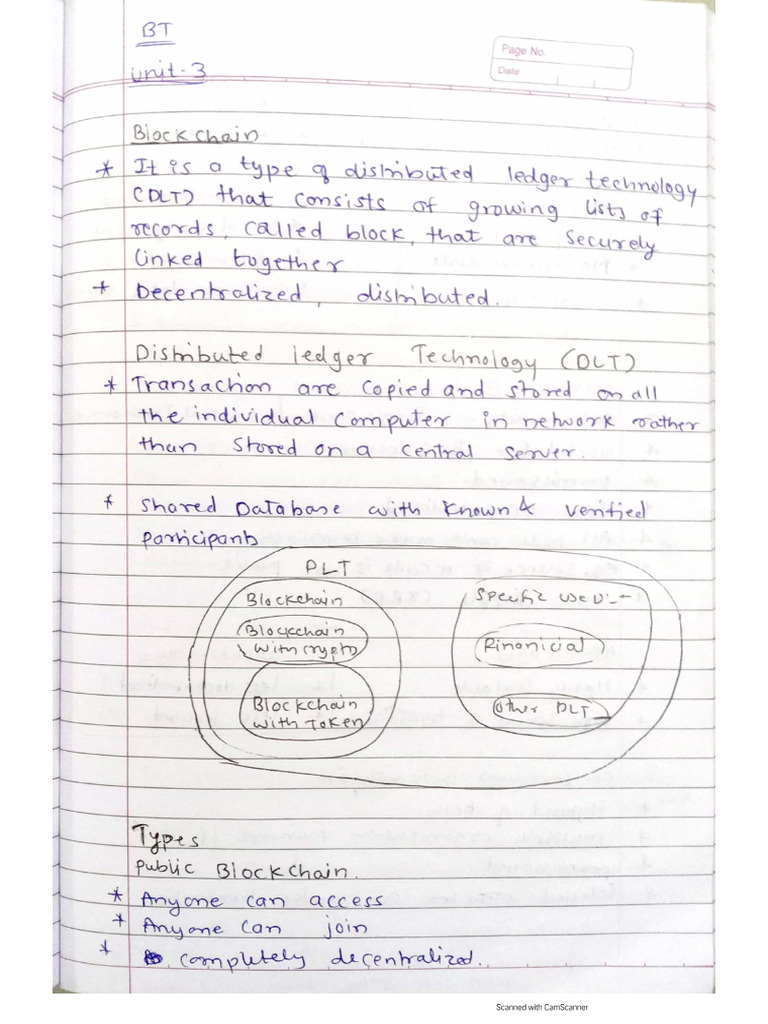 BT
Page No.
unit-3
Date
Blockchain
* It is a type of distributed ledger technology
(DLT) that consists of growing lists of
records, called block, that are securely
linked together
* Decentralized, distributed.
Distributed ledger Technology (DLT)
* Transaction are copied and stored on all
the individual computer in network rather
than stored on a central server.
* Shared Database with known & verified
participants
DLT
Blockchain
Specific use DLT
Blockchain
with crypto
Financial
Blockchain
with Token
other DLT
Types
Public Blockchain.
* Anyone can access
* Anyone can join
* completely decentralized.
Scanned with CamScanner